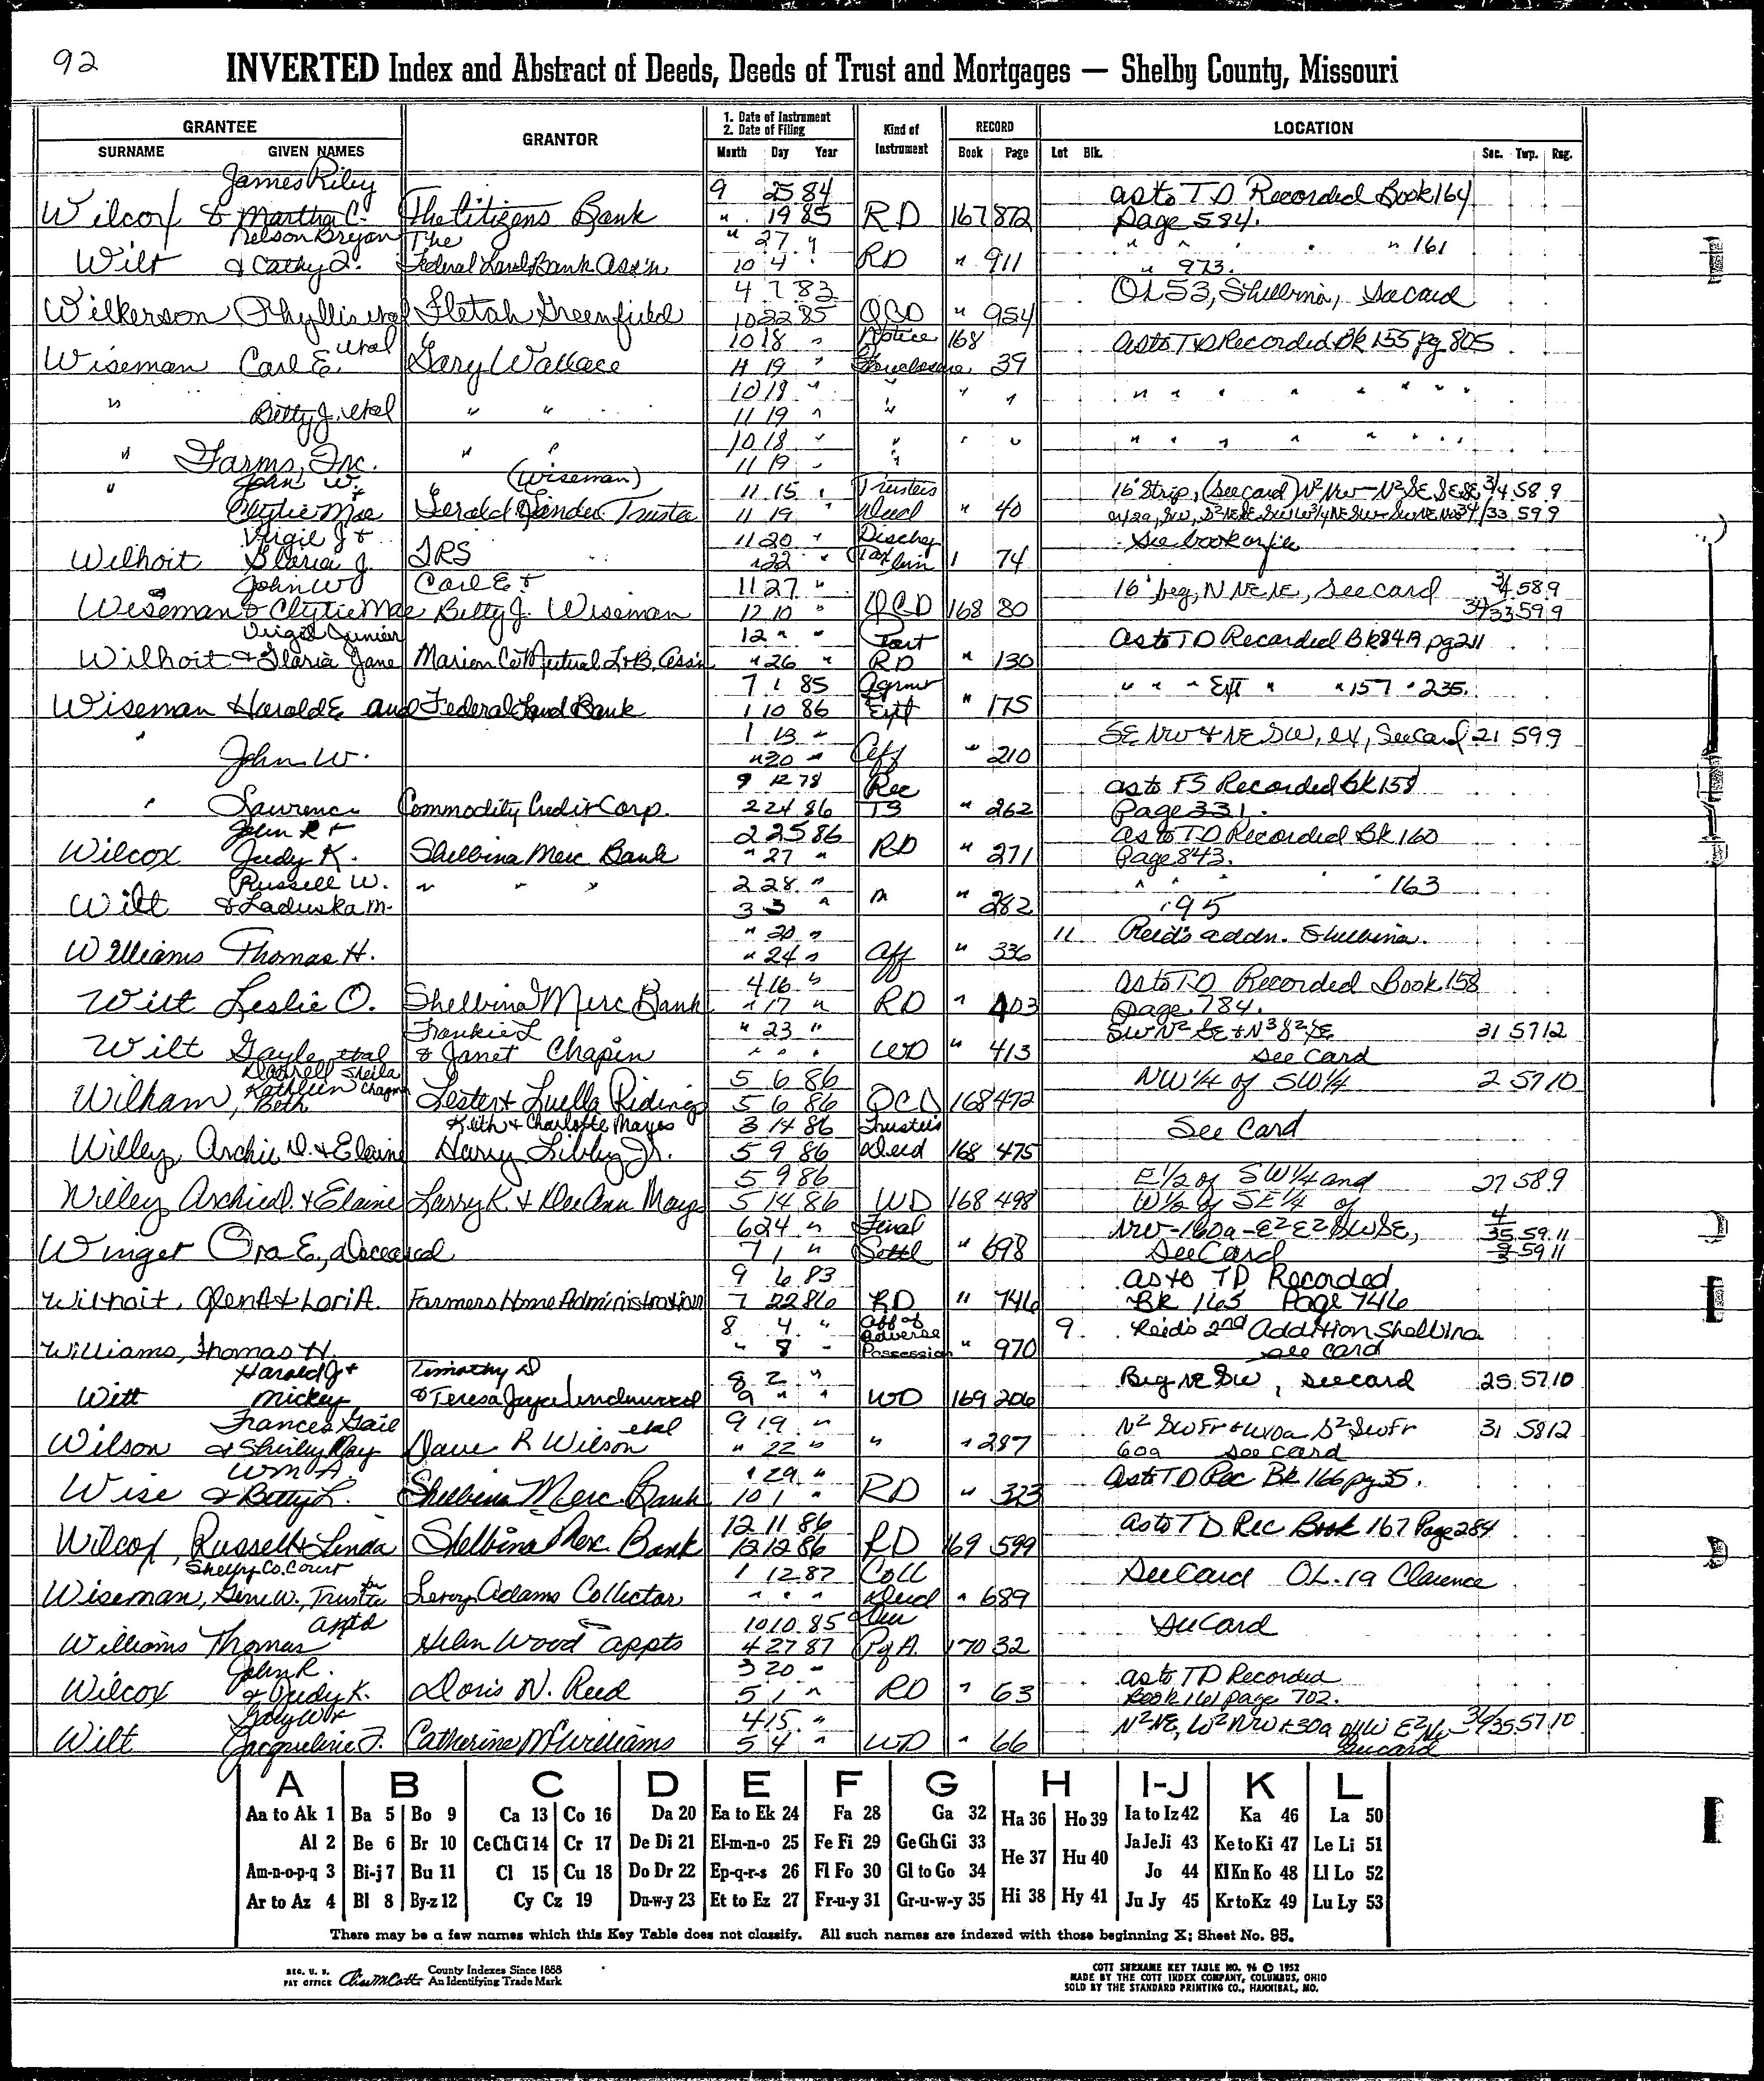 92
INVERTED Index and Abstract of Deeds, Deeds of Trust and Mortgages — Shelby County, Missouri
GRANTEE GRANTOR 1. Date of Instrument 2. Date of Filing Kind of Instrument RECORD LOCATION
SURNAME GIVEN NAMES Month Day Year Book Page Lot Blk. Sec. Twp. Rng.
James Riley 9 25 84 as to TD Recorded Book 164
Wilcox & Martha C. The Citizens Bank " 19 85 RD 167 872 page 584.
Nelson Bryan The " 27 " " " " " 161
Wilt & Cathy L. Federal Land Bank Ass'n 10 4 " RD " 911 " 973.
4 7 83 OL 53, Shelbina, See card
Wilkerson Phyllis etal Fletah Greenfield 10 22 85 QCD " 954
etal 10 18 " Notice 168 as to TD Recorded Bk 155 pg 805
Wiseman Carl E. Gary Wallace 11 19 " Foreclosure 39
10 18 " " " " " " " " " "
" Betty J. etal " " 11 19 " "
10 18 " " " " " " " " " "
" Farms, Inc. " " 11 19 " "
" John W. & (Wiseman) 11 15 " Trustees 16' Strip, (see card) N2 NW - N2 SE SE SE 3/4 58 9
Clytie Mae Gerald Trustee 11 19 " Deed " 40 34/33 59 9
Virgil J & 11 20 " Dischg See book on file
Wilhoit Gloria J. IRS " 22 " Tax Lien 1 74
John W Carl E & 11 27 " 16' beg, N NE NE, see card 3/4 58 9
Wiseman & Clytie Mae Betty J. Wiseman 12 10 " QCD 168 80 34/33 59 9
Virgil Junior 12 " " Part as to TD Recorded Bk 84A pg 211
Wilhoit & Gloria Jane Marion Co Mutual L & B. Ass'n " 26 " RD " 130
7 1 85 Agrmt " " " Ext " " 157 " 235.
Wiseman Harold E and Federal Land Bank 1 10 86 Ext " 175
1 13 " SE NW & NE SW, ex, See Card 21 59 9
" John W. " 20 " Aff " 210
9 12 78 Rec as to FS Recorded Bk 158
" Lawrence Commodity Credit Corp. 2 24 86 " 262 Page 331.
John R & 2 25 86 as to TD Recorded Bk 160
Wilcox Judy K. Shelbina Merc Bank " 27 " RD " 271 Page 843.
Russell W. " " " 2 28 " " " " " 163
Wilt & Laduska M. 3 3 " " " 282 " 95
" 20 " 11 Reid's addn. Shelbina.
Williams Thomas H. " 24 " Aff " 336
4 16 " as to TD Recorded Book 158
Wilt Leslie O. Shelbina Merc Bank " 17 " RD " 403 page 784.
Frankie L " 23 " SW N2 SE & N3 S2 SE 31 57 12
Wilt Gayle etal & Janet Chapin " " " WD " 413 see card
Darrell Sheila 5 6 86 NW 1/4 of SW 1/4 2 57 10
Wilham, Kathleen Beth Lester & Luella Ridings 5 6 86 QCD 168 472
Keith & Charlotte Mayes 3 14 86 Trustees See Card
Willey Archie D. & Elaine Harry Libby Jr. 5 9 86 Deed 168 475
5 9 86 E 1/2 of SW 1/4 and 27 58 9
Willey Archie D. & Elaine Larry K. & DeeAnn Mays 5 14 86 WD 168 498 W 1/2 of SE 1/4 of
6 24 " Final NW-160a-E2 E2 SW SE, 4 35 59 11
Winger Ora E., deceased 7 1 " Settl " 698 See Card 3 59 11
9 6 83 as to TD Recorded
Wilhoit, Glen A & Lori A. Farmers Home Administration 7 22 86 RD " 746 BK 165 Page 746
8 4 " Aff of Adverse 9 Reid's 2nd Addition Shelbina
Williams, Thomas H. " 8 " Possession " 970 see card
Harold J & Timothy D 8 2 " Beg NE SW, see card 25 57 10
Witt Mickey & Teresa Joyce Underwood 9 " " WD 169 206
Frances Gail etal 9 19 " N2 SW Fr & W 10a S2 SW Fr 31 58 12
Wilson & Shirley Ray Dave R Wilson " 22 " " " 287 60a see card
Wm A. " 29 " as to TD Rec Bk 166 pg 35.
Wise & Betty L. Shelbina Merc Bank 10 1 " RD " 323
12 11 86 as to TD Rec Book 167 Page 284
Wilcox, Russell & Linda Shelbina Merc. Bank 12 12 86 RD 169 599
Shelby Co. Court 1 12 87 Coll See Card OL. 19 Clarence
Wiseman, Gene W., Trustee for Leroy Adams Collector " " " Deed " 689
aptd 10 10 85 See Card
Williams Thomas Helen Wood appts 4 27 87 Pg A. 170 32
John R. 3 20 " as to TD Recorded
Wilcox & Judy K. Doris N. Reed 5 1 " RD " 63 Book 161 page 702.
Gary W & 4 15 " N2 NE, W2 NW & 30a 36/35 57 10
Wilt Jacqueline F. Catherine McWilliams 5 4 " WD " 66 See card
A B C D E F G H I-J K L
Aa to Ak 1 Ba 5 Bo 9 Ca 13 Co 16 Da 20 Ea to Ek 24 Fa 28 Ga 32 Ha 36 Ho 39 Ia to Iz 42 Ka 46 La 50
Al 2 Be 6 Br 10 Ce Ch Ci 14 Cr 17 De Di 21 El-m-n-o 25 Fe Fi 29 Ge Gh Gi 33 He 37 Hu 40 Ja Je Ji 43 Ke to Ki 47 Le Li 51
Am-n-o-p-q 3 Bi-j 7 Bu 11 Cl 15 Cu 18 Do Dr 22 Ep-q-r-s 26 Fl Fo 30 Gl to Go 34 Jo 44 Kl Kn Ko 48 Ll Lo 52
Ar to Az 4 Bl 8 By-z 12 Cy Cz 19 Du-w-y 23 Et to Ez 27 Fr-u-y 31 Gr-u-w-y 35 Hi 38 Hy 41 Ju Jy 45 Kr to Kz 49 Lu Ly 53
There may be a few names which this Key Table does not classify. All such names are indexed with those beginning X; Sheet No. 95.
REG. U. S. PAT OFFICE County Indexes Since 1888 An Identifying Trade Mark
COTT SURNAME KEY TABLE NO. 96 © 1952
MADE BY THE COTT INDEX COMPANY, COLUMBUS, OHIO
SOLD BY THE STANDARD PRINTING CO., HANNIBAL, MO.